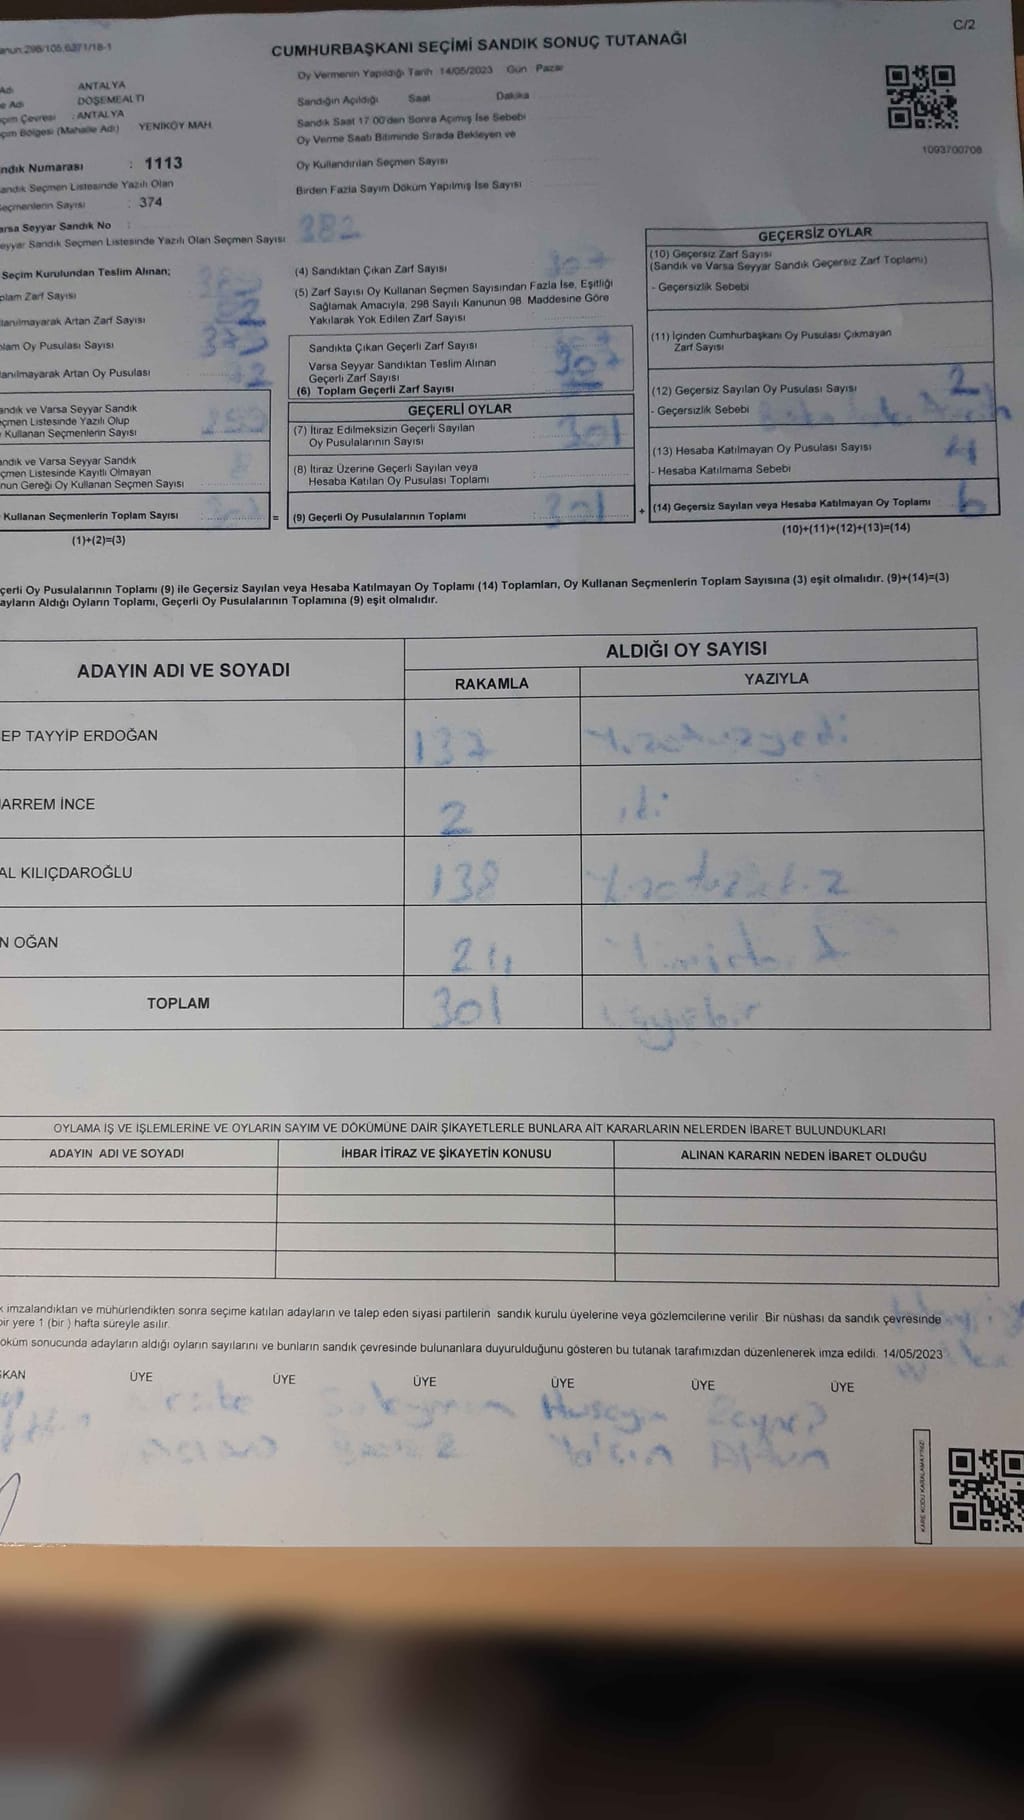 C/2
CUMHURBAŞKANI SEÇİMİ SANDIK SONUÇ TUTANAĞI
anun:298/105,6271/18-1
Oy Vermenin Yapıldığı Tarih 14/05/2023 Gün Pazar
Adı ANTALYA
e Adı DÖŞEMEALTI
çim Çevresi : ANTALYA
çim Bölgesi (Mahalle Adı) YENİKÖY MAH.
Sandığın Açıldığı Saat Dakika
Sandık Saat 17:00'den Sonra Açımış İse Sebebi
Oy Verme Saati Bitiminde Sırada Bekleyen ve
Oy Kullandırılan Seçmen Sayısı
Birden Fazla Sayım Döküm Yapılmış İse Sayısı
1093700708
ndık Numarası : 1113
andık Seçmen Listesinde Yazılı Olan
eçmenlerin Sayısı : 374
arsa Seyyar Sandık No :
eyyar Sandık Seçmen Listesinde Yazılı Olan Seçmen Sayısı
382
Seçim Kurulundan Teslim Alınan;
plam Zarf Sayısı
llanılmayarak Artan Zarf Sayısı
plam Oy Pusulası Sayısı
lanılmayarak Artan Oy Pusulası
andık ve Varsa Seyyar Sandık
çmen Listesinde Yazılı Olup
Kullanan Seçmenlerin Sayısı
andık ve Varsa Seyyar Sandık
çmen Listesinde Kayıtlı Olmayan
nun Gereği Oy Kullanan Seçmen Sayısı
Kullanan Seçmenlerin Toplam Sayısı
(1)+(2)=(3)
(4) Sandıktan Çıkan Zarf Sayısı 307
(5) Zarf Sayısı Oy Kullanan Seçmen Sayısından Fazla İse, Eşitliği
Sağlamak Amacıyla, 298 Sayılı Kanunun 98. Maddesine Göre
Yakılarak Yok Edilen Zarf Sayısı
Sandıkta Çıkan Geçerli Zarf Sayısı
Varsa Seyyar Sandıktan Teslim Alınan
Geçerli Zarf Sayısı
(6) Toplam Geçerli Zarf Sayısı 307
GEÇERLİ OYLAR
(7) İtiraz Edilmeksizin Geçerli Sayılan
Oy Pusulalarının Sayısı 301
(8) İtiraz Üzerine Geçerli Sayılan veya
Hesaba Katılan Oy Pusulası Toplamı
= (9) Geçerli Oy Pusulalarının Toplamı : 301 +
GEÇERSİZ OYLAR
(10) Geçersiz Zarf Sayısı
(Sandık ve Varsa Seyyar Sandık Geçersiz Zarf Toplamı)
- Geçersizlik Sebebi
(11) İçinden Cumhurbaşkanı Oy Pusulası Çıkmayan
Zarf Sayısı
(12) Geçersiz Sayılan Oy Pusulası Sayısı 2
- Geçersizlik Sebebi
(13) Hesaba Katılmayan Oy Pusulası Sayısı 4
- Hesaba Katılmama Sebebi
(14) Geçersiz Sayılan veya Hesaba Katılmayan Oy Toplamı 6
(10)+(11)+(12)+(13)=(14)
çerli Oy Pusulalarının Toplamı (9) ile Geçersiz Sayılan veya Hesaba Katılmayan Oy Toplamı (14) Toplamları, Oy Kullanan Seçmenlerin Toplam Sayısına (3) eşit olmalıdır. (9)+(14)=(3)
ayların Aldığı Oyların Toplamı, Geçerli Oy Pusulalarının Toplamına (9) eşit olmalıdır.
ADAYIN ADI VE SOYADI ALDIĞI OY SAYISI
RAKAMLA YAZIYLA
EP TAYYİP ERDOĞAN 137
ARREM İNCE 2
AL KILIÇDAROĞLU 138
N OĞAN 24
TOPLAM 301
OYLAMA İŞ VE İŞLEMLERİNE VE OYLARIN SAYIM VE DÖKÜMÜNE DAİR ŞİKAYETLERLE BUNLARA AİT KARARLARIN NELERDEN İBARET BULUNDUKLARI
ADAYIN ADI VE SOYADI İHBAR İTİRAZ VE ŞİKAYETİN KONUSU ALINAN KARARIN NEDEN İBARET OLDUĞU
k imzalandıktan ve mühürlendikten sonra seçime katılan adayların ve talep eden siyasi partilerin sandık kurulu üyelerine veya gözlemcilerine verilir .Bir nüshası da sandık çevresinde
bir yere 1 (bir ) hafta süreyle asılır.
öküm sonucunda adayların aldığı oyların sayılarını ve bunların sandık çevresinde bulunanlara duyurulduğunu gösteren bu tutanak tarafımızdan düzenlenerek imza edildi. 14/05/2023
ŞKAN ÜYE ÜYE ÜYE ÜYE ÜYE ÜYE
Süleyman Hüseyin Zeynep
Yalçın Altun
KARE KODU KARALAMAYINIZ!